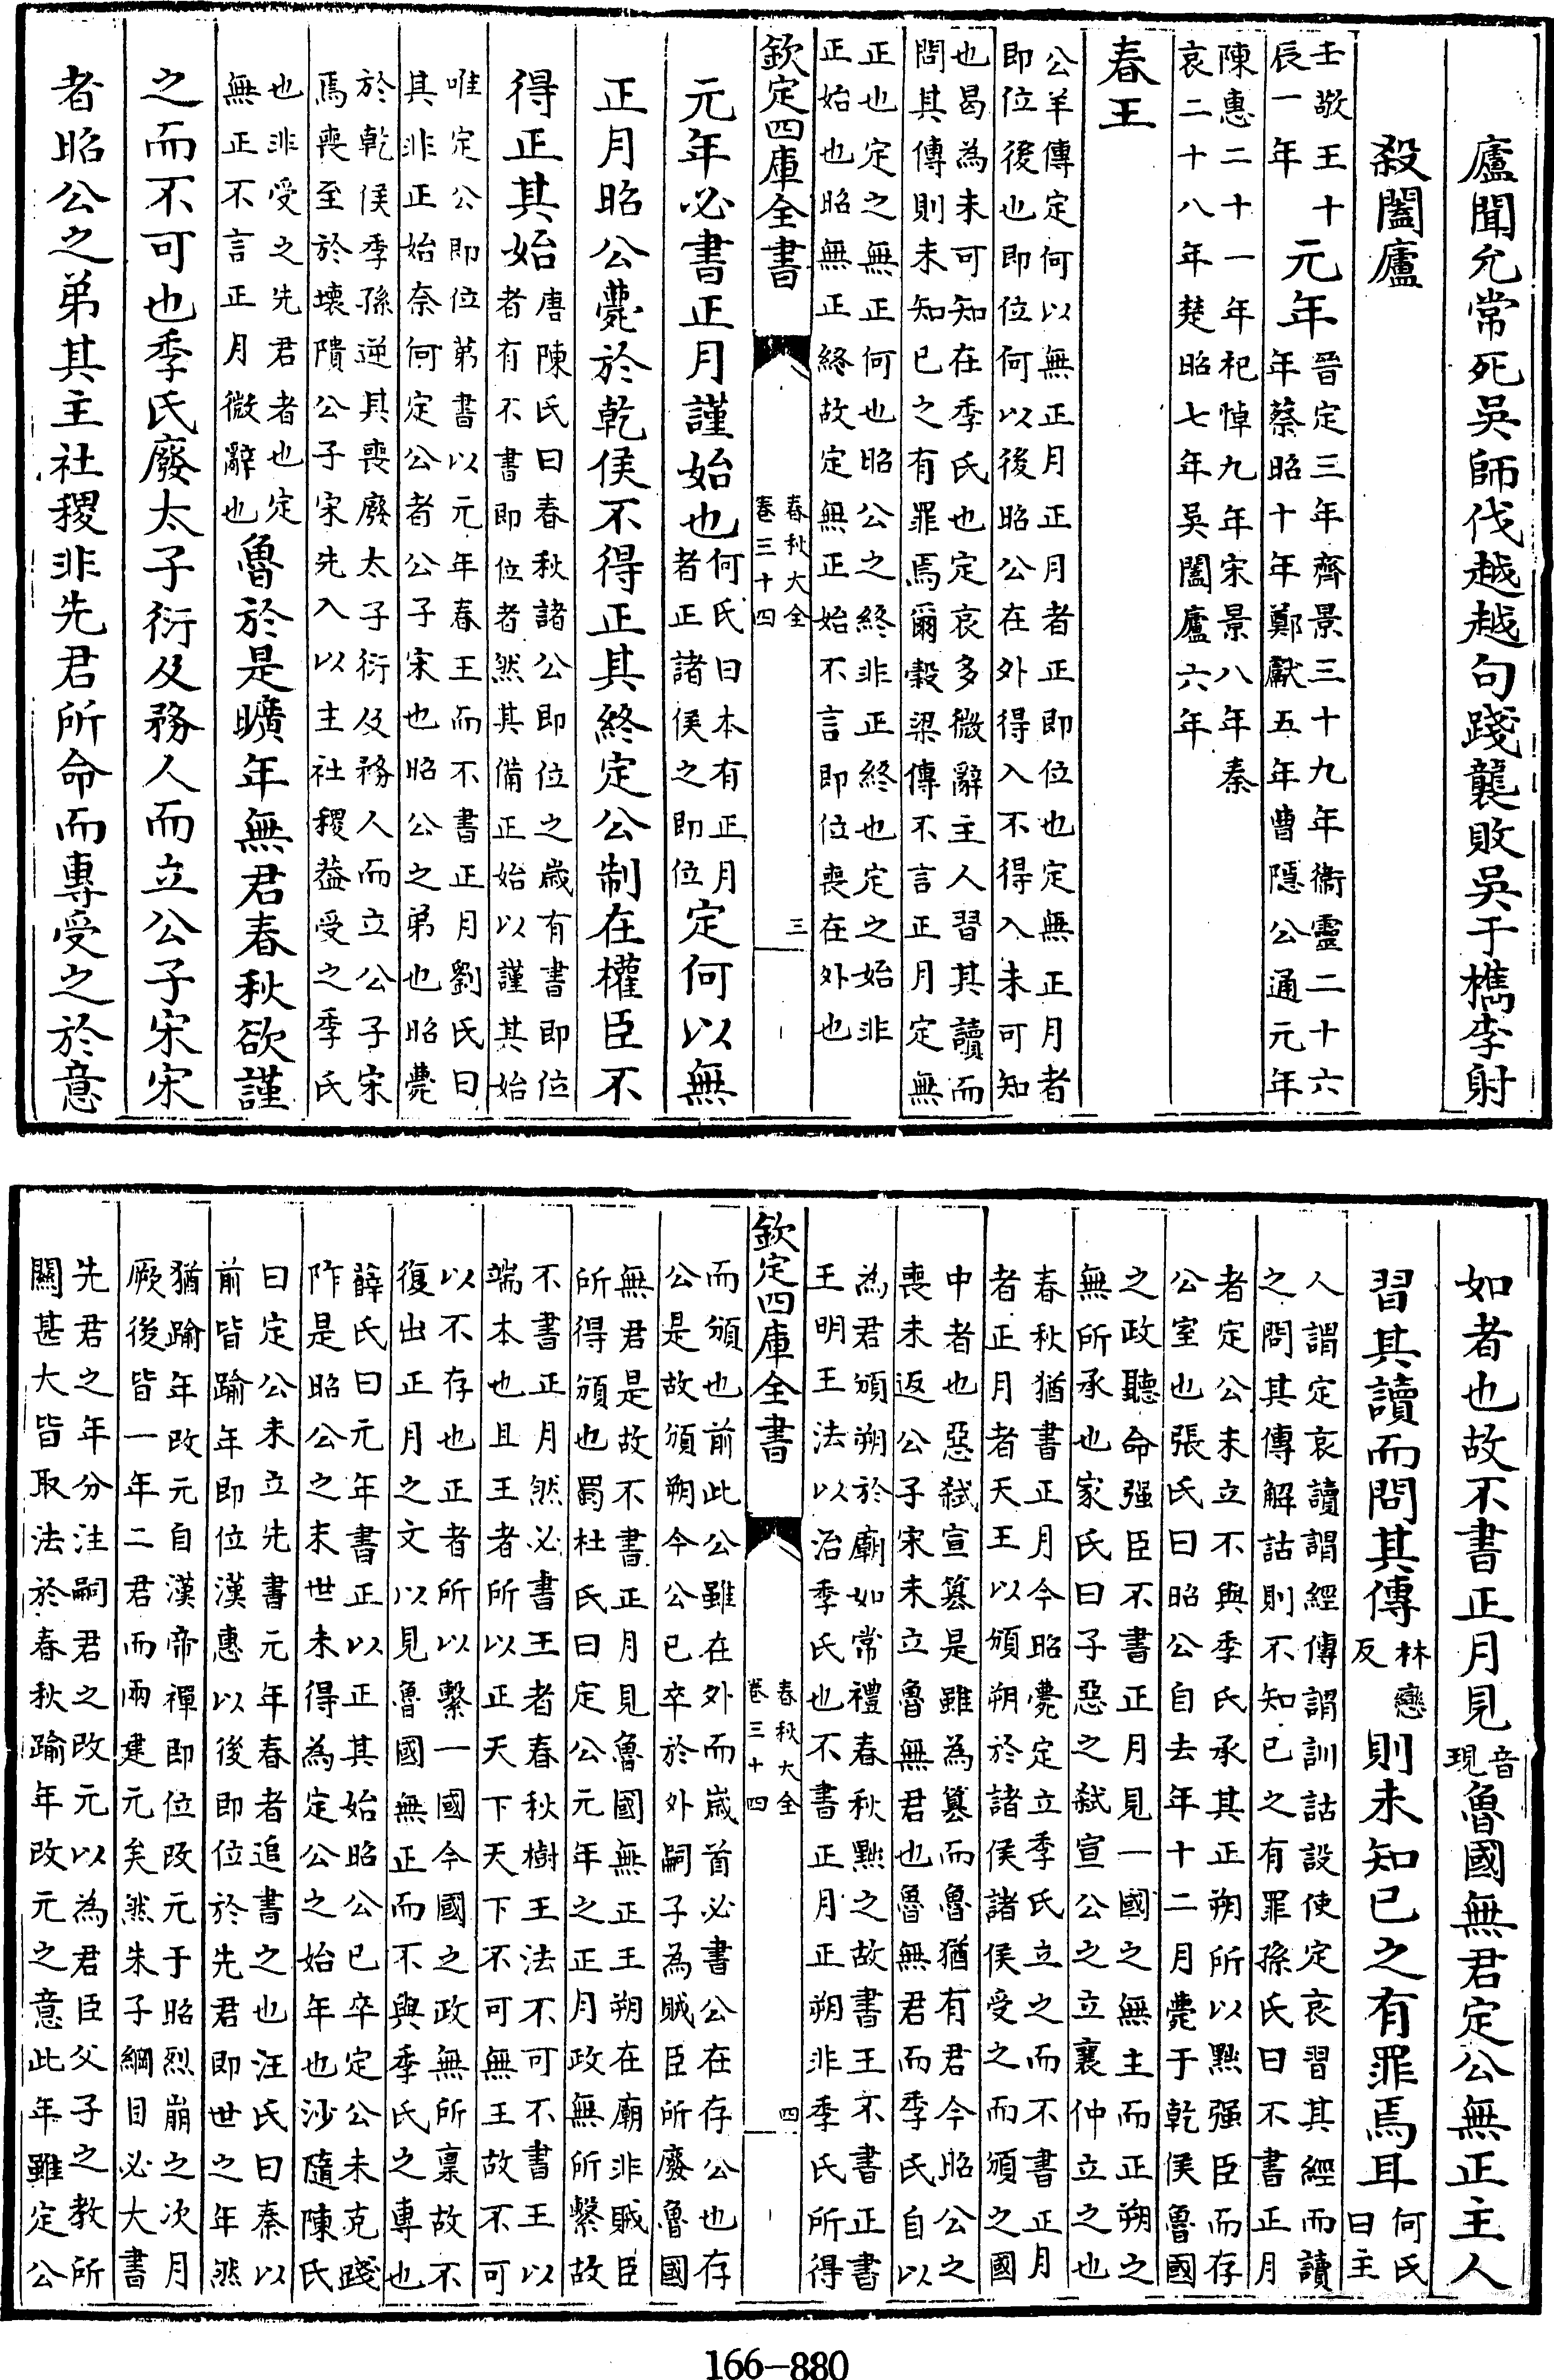 廬聞允常死吳師伐越越句踐襲敗吳于檇李射
殺闔廬
壬敬王十
辰一年
元年
晉定三年齊景三十九年衞靈二十六
年蔡昭十年鄭獻五年曹隱公通元年
陳惠二十一年杞悼九年宋景八年秦
哀二十八年楚昭七年吳闔廬六年
春王
公羊傳定何以無正月正月者正即位也定無正月者
即位後也即位何以後昭公在外得入不得入未可知
也曷為未可知在季氏也定哀多微辭主人習其讀而
問其傳則未知已之有罪焉爾穀梁傳不言正月定無
正也定之無正何也昭公之終非正終也定之始非
正始也昭無正終故定無正始不言即位喪在外也
欽定四庫全書
春秋大全
卷三十四
三
元年必書正月謹始也
何氏曰本有正月
者正諸侯之即位
定何以無
正月昭公薨於乾侯不得正其終定公制在權臣不
得正其始
唐陳氏曰春秋諸公即位之歲有書即位
者有不書即位者然其備正始以謹其始
唯定公即位第書以元年春王而不書正月劉氏曰
其非正始奈何定公者公子宋也昭公之弟也昭薨
於乾侯季孫逆其喪廢太子衍及務人而立公子宋
焉喪至於壞隤公子宋先入以主社稷葢受之季氏
也非受之先君者也定
無正不言正月微辭也
魯於是曠年無君春秋欲謹
之而不可也季氏廢太子衍及務人而立公子宋宋
者昭公之弟其主社稷非先君所命而專受之於意
如者也故不書正月見
音
現
魯國無君定公無正主人
習其讀而問其傳
林戀
反
則未知已之有罪焉耳
何氏
曰主
人謂定哀讀謂經傳謂訓詁設使定哀習其經而讀
之問其傳解詁則不知已之有罪孫氏曰不書正月
者定公未立不與季氏承其正朔所以黜强臣而存
公室也張氏曰昭公自去年十二月薨于乾侯魯國
之政聽命强臣不書正月見一國之無主而正朔之
無所承也家氏曰子惡之弑宣公之立襄仲立之也
春秋猶書正月今昭薨定立季氏立之而不書正月
者正月者天王以頒朔於諸侯諸侯受之而頒之國
中者也惡弑宣簒是雖為簒而魯猶有君今昭公之
喪未返公子宋未立魯無君也魯無君而季氏自以
為君頒朔於廟如常禮春秋黜之故書王不書正書
王明王法以治季氏也不書正月正朔非季氏所得
欽定四庫全書
春秋大全
卷三十四
四
而頒也前此公雖在外而歲首必書公在存公也存
公是故頒朔今公已卒於外嗣子為賊臣所廢魯國
無君是故不書正月見魯國無正王朔在廟非賊臣
所得頒也蜀杜氏曰定公元年之正月政無所繫故
不書正月然必書王者春秋樹王法不可不書王以
端本也且王者所以正天下天下不可無王故不可
以不存也正者所以繫一國今國之政無所稟故不
復出正月之文以見魯國無正而不與季氏之專也
薛氏曰元年書正以正其始昭公已卒定公未克踐
阼是昭公之末世未得為定公之始年也沙隨陳氏
曰定公未立先書元年春者追書之也汪氏曰秦以
前皆踰年即位漢惠以後即位於先君即世之年然
猶踰年改元自漢帝禪即位改元于昭烈崩之次月
厥後皆一年二君而兩建元矣然朱子綱目必大書
先君之年分注嗣君之改元以為君臣父子之教所
關甚大皆取法於春秋踰年改元之意此年雖定公
166-880